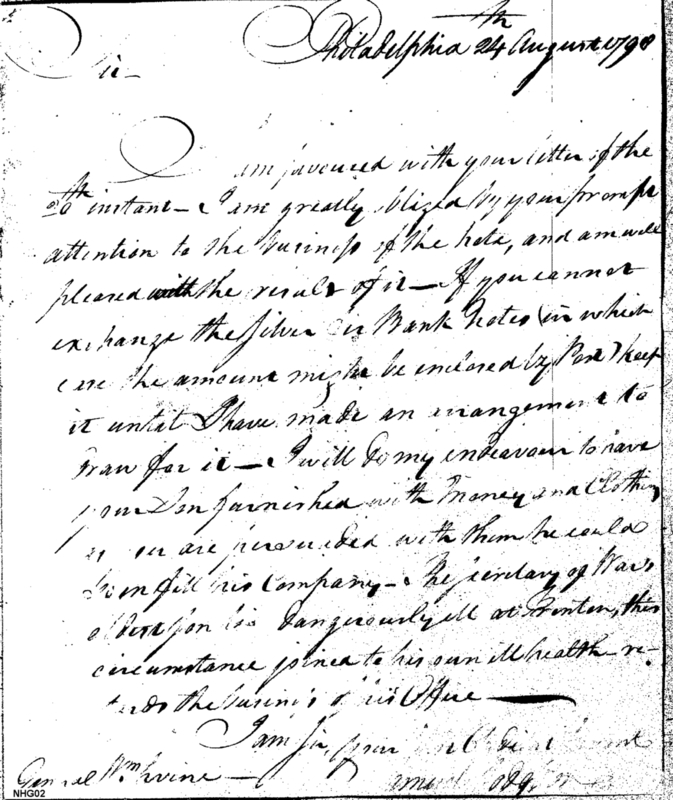 Philadelphia 24th August 1798
Sir –
I am favoured with your letter of the
20th instant – I am greatly oblized by your prompt
attention to the business of the note, and am well
pleased with the result of it – If you cannot
exchange the silver for Bank Notes (in which
case the amount might be enclosed by Post) keep
it until I have made an arrangement to
draw for it – I will do my endeavour to have
your Son furnished with Money and Clothing
as you are persuaded with them he could
soon fill his Company – The Secretary of War's
oldest son lies dangerously ill at Trenton, this
circumstance joined to his own ill health re-
tards the business of his Office –
I am Sir, your Obedient Servant
General Wm Irvine –
NHG02